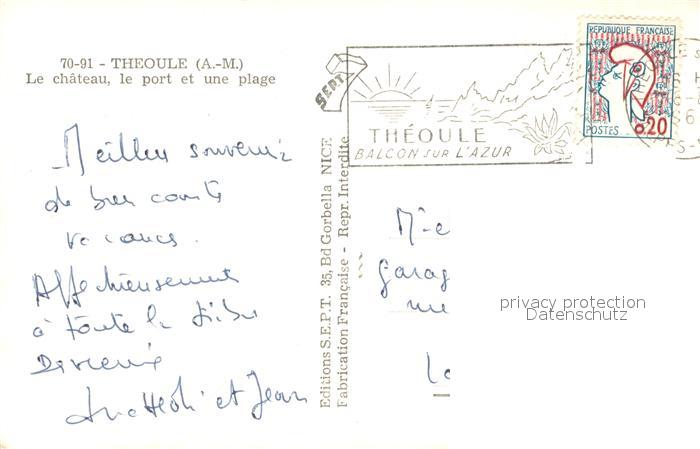 70-91 - THEOULE (A.-M.)
Le château, le port et une plage
Meilleur souvenir
de bien courtes
vacances.
Affectueusement
à toute la tribu
et Jean
Editions S.E.P.T. 35, Bd Gorbella NICE
Fabrication Française - Repr. Interdite
SEPT
THÉOULE
BALCON SUR L'AZUR
REPUBLIQUE FRANÇAISE
POSTES 0.20
garag
privacy protection
Datenschutz